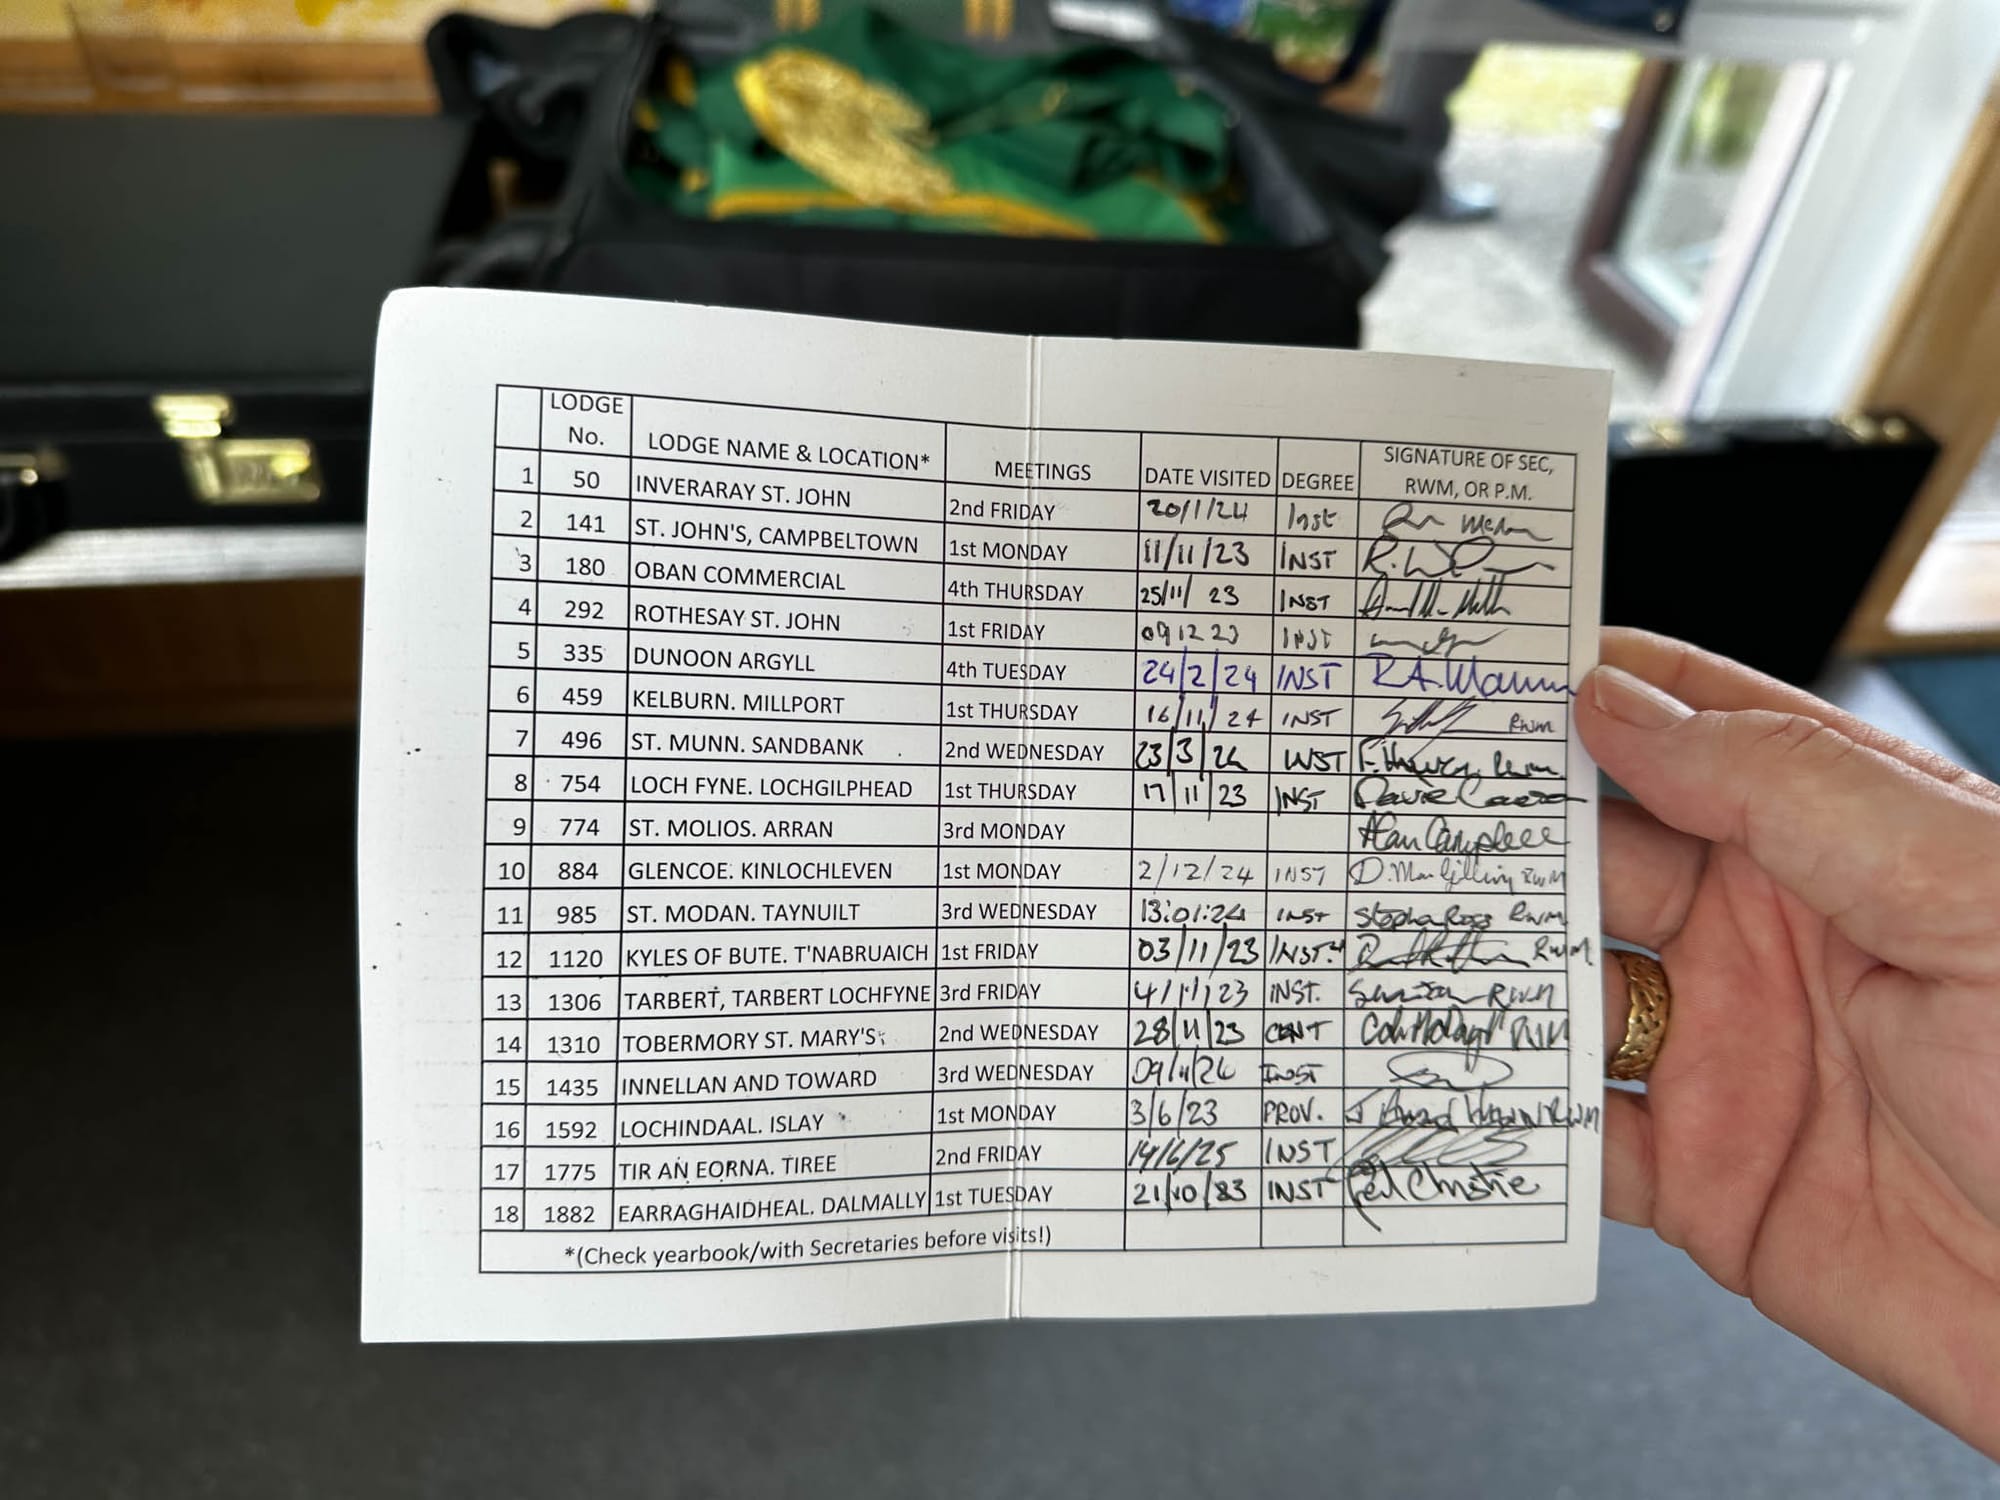 LODGE No. LODGE NAME & LOCATION* MEETINGS DATE VISITED DEGREE SIGNATURE OF SEC, RWM, OR P.M.
1 50 INVERARAY ST. JOHN 2nd FRIDAY 20/1/24 Inst
2 141 ST. JOHN'S, CAMPBELTOWN 1st MONDAY 11/11/23 INST
3 180 OBAN COMMERCIAL 4th THURSDAY 25/11/23 INST
4 292 ROTHESAY ST. JOHN 1st FRIDAY 09 12 23 INST
5 335 DUNOON ARGYLL 4th TUESDAY 24/2/24 INST R.A.
6 459 KELBURN. MILLPORT 1st THURSDAY 16/11/24 INST RWM
7 496 ST. MUNN. SANDBANK 2nd WEDNESDAY 23/3/24 INST
8 754 LOCH FYNE. LOCHGILPHEAD 1st THURSDAY 17/11/23 INST
9 774 ST. MOLIOS. ARRAN 3rd MONDAY Alan Campbell
10 884 GLENCOE. KINLOCHLEVEN 1st MONDAY 2/12/24 INST D. RWM
11 985 ST. MODAN. TAYNUILT 3rd WEDNESDAY 13:01:24 INST Ross RWM
12 1120 KYLES OF BUTE. T'NABRUAICH 1st FRIDAY 03/11/23 INST. RWM
13 1306 TARBERT, TARBERT LOCHFYNE 3rd FRIDAY 4/11/23 INST. RWM
14 1310 TOBERMORY ST. MARY'S 2nd WEDNESDAY 28/11/23 RWM
15 1435 INNELLAN AND TOWARD 3rd WEDNESDAY INST
16 1592 LOCHINDAAL. ISLAY 1st MONDAY 3/6/23 PROV. RWM
17 1775 TIR AN EORNA. TIREE 2nd FRIDAY 14/6/25 INST
18 1882 EARRAGHAIDHEAL. DALMALLY 1st TUESDAY 21/10/23 INST Christie
*(Check yearbook/with Secretaries before visits!)